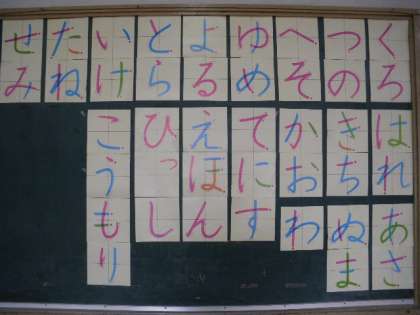 くろ
つの
へそ
ゆめ
よる
とら
いけ
たね
せみ
はれ
きち
かお
てにす
えほん
ひっし
こうもり
あさ
ぬま
わ